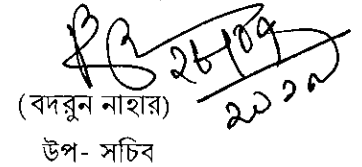 ২৮/০৭
২০১৭
(বদরুন নাহার)
উপ- সচিব